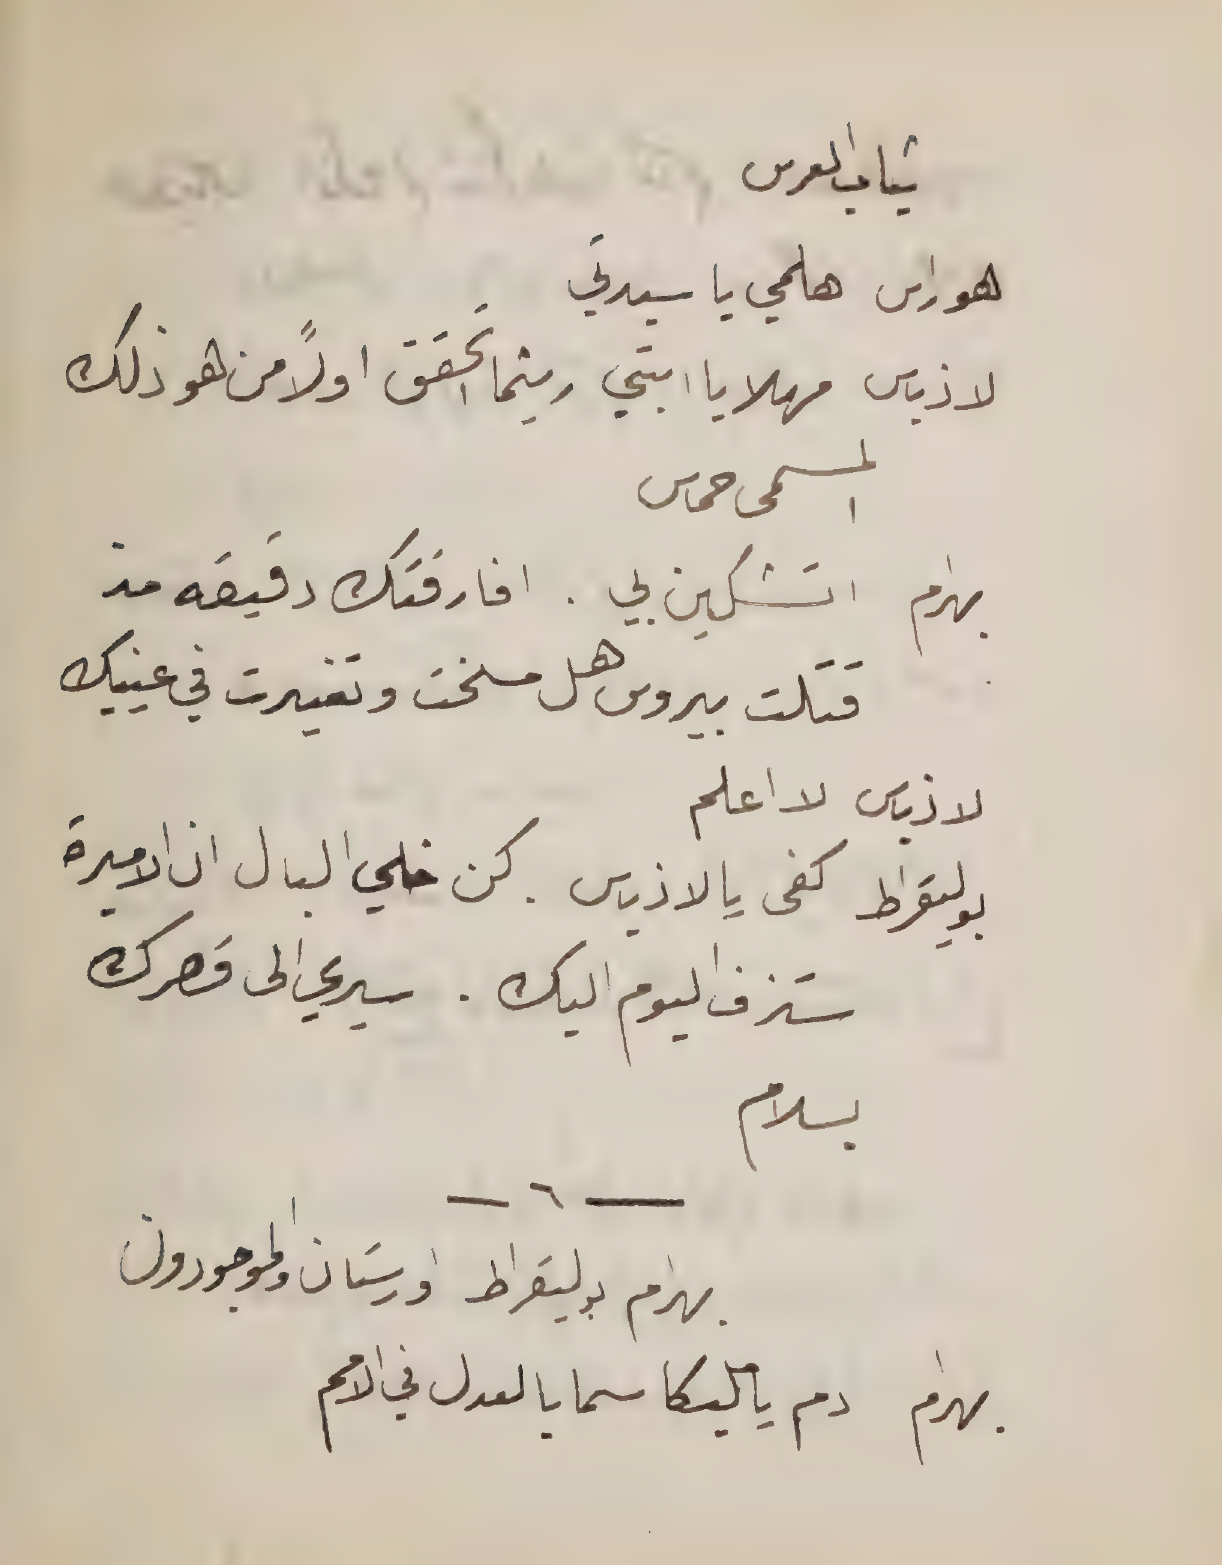 ثياب العرس
هوراس هلمي يا سيدتي
لاذياس مهلا يا ابنتي ريثما اتحقق اولاً من هو ذلك
المسمى حماس
بهرام اتشكين بي . افارقتك دقيقه مذ
قتلت بيروس هل مسخت وتغيرت في عينيك
لاذياس لا اعلم
بوليقراط كفى يا لاذياس . كن خلي البال ان الاميرة
ستزف اليوم اليك . سيري الى قصرك
بسلام
— ٦ —
بهرام بوليقراط اورستان والموجودون
بهرام دم يا مليكا سما بالعدل في الامم